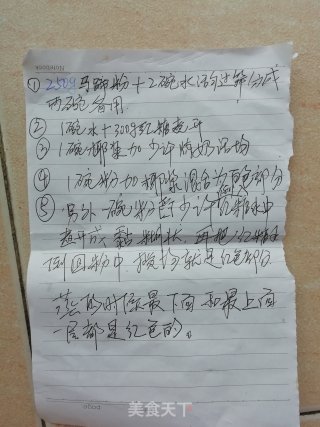 Notebook
① 250g马蹄粉+2碗水活匀过筛分成
两碗备用
② 1碗水+300g红糖煮开
③ 1碗椰浆加少许牛奶混均
④ 1碗粉加椰浆混合为白色部分
⑤ 另外一碗粉舀少许在红糖水中
煮开成黏糊状，再把红糖水
倒回粉中 搅匀就是红色部分
蒸的时候最下面和最上面
一层都是红色的。
page
美食天下